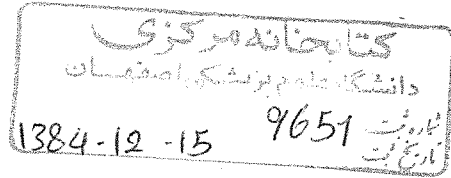 کتابخانه مرکزی
دانشگاه علوم پزشکی اصفهان
شماره ثبت 9651
تاریخ ثبت 1384-12-15